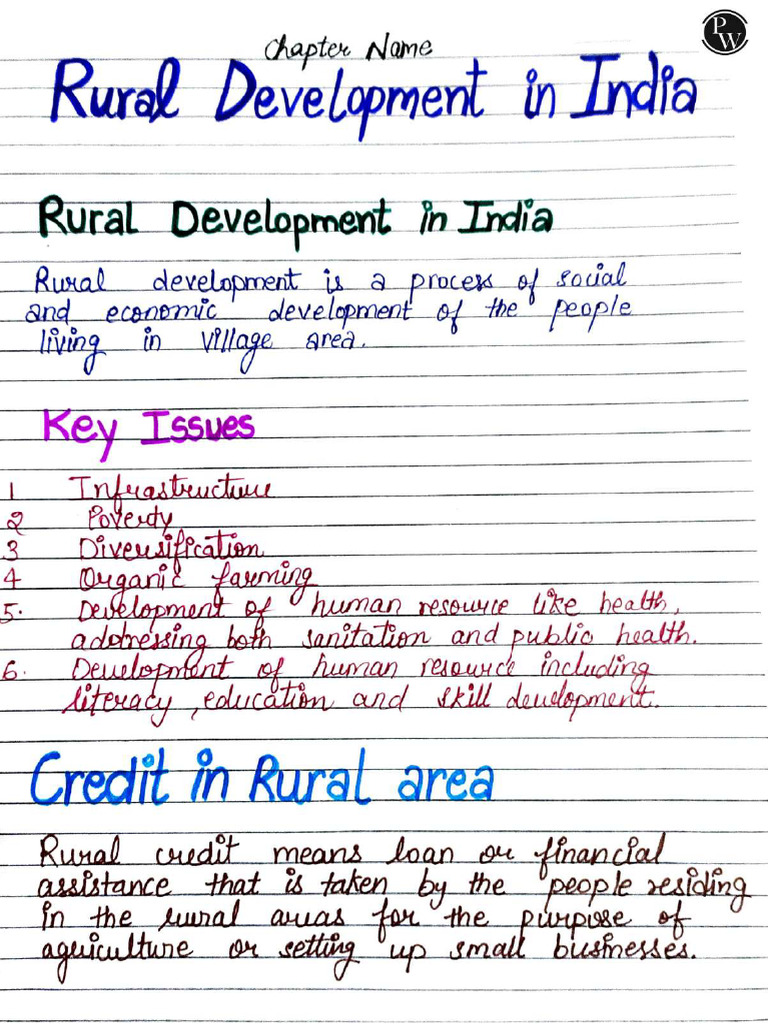 PW
Chapter Name
Rural Development in India
Rural Development in India
Rural development is a process of social
and economic development of the people
living in village area.
Key Issues
1 Infrastructure
2 Poverty
3 Diversification
4 Organic farming
5. Development of human resource like health,
addressing both sanitation and public health.
6. Development of human resource including
literacy, education and skill development.
Credit in Rural area
Rural credit means loan or financial
assistance that is taken by the people residing
in the rural areas for the purpose of
agriculture or setting up small businesses.